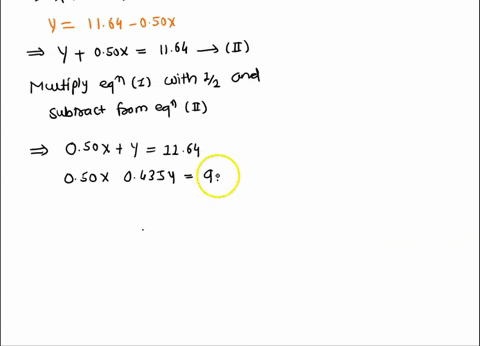 Y = 11.64 - 0.50X
⇒ Y + 0.50X = 11.64 → (II)
Multiply eqⁿ (I) with 1/2 and
subtract from eqⁿ (II)
⇒ 0.50X + Y = 11.64
0.50X 0.435Y = 9.